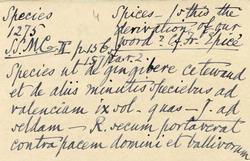 Species Spices – Is this the
1275 derivation of our
S.P.M.C. II p 156, word? Cf. Fr. Epice
157 par. 2.
Species ut de gingibere cetewaud
et de aliis minutis speciebus ad
valenciam ix sol. quas – J. ad
seldam – R. secum portaverat
contra pacem domini et ballivorum